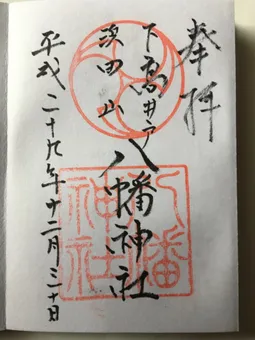 奉拝
下高井戸
八幡神社
浜田山
平成二十九年十二月三十日
八幡神社